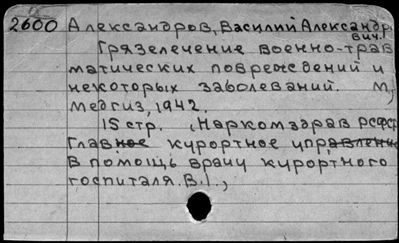 2600 Александров, Василий Александр
вич.
Грязелечение военно-трав
матических повреждений и
некоторых заболеваний. М,
Медгиз, 1942.
15 стр. (Наркомздрав РСФСР
Главное курортное управление
В помощь врачу курортного
госпиталя. В.I.,